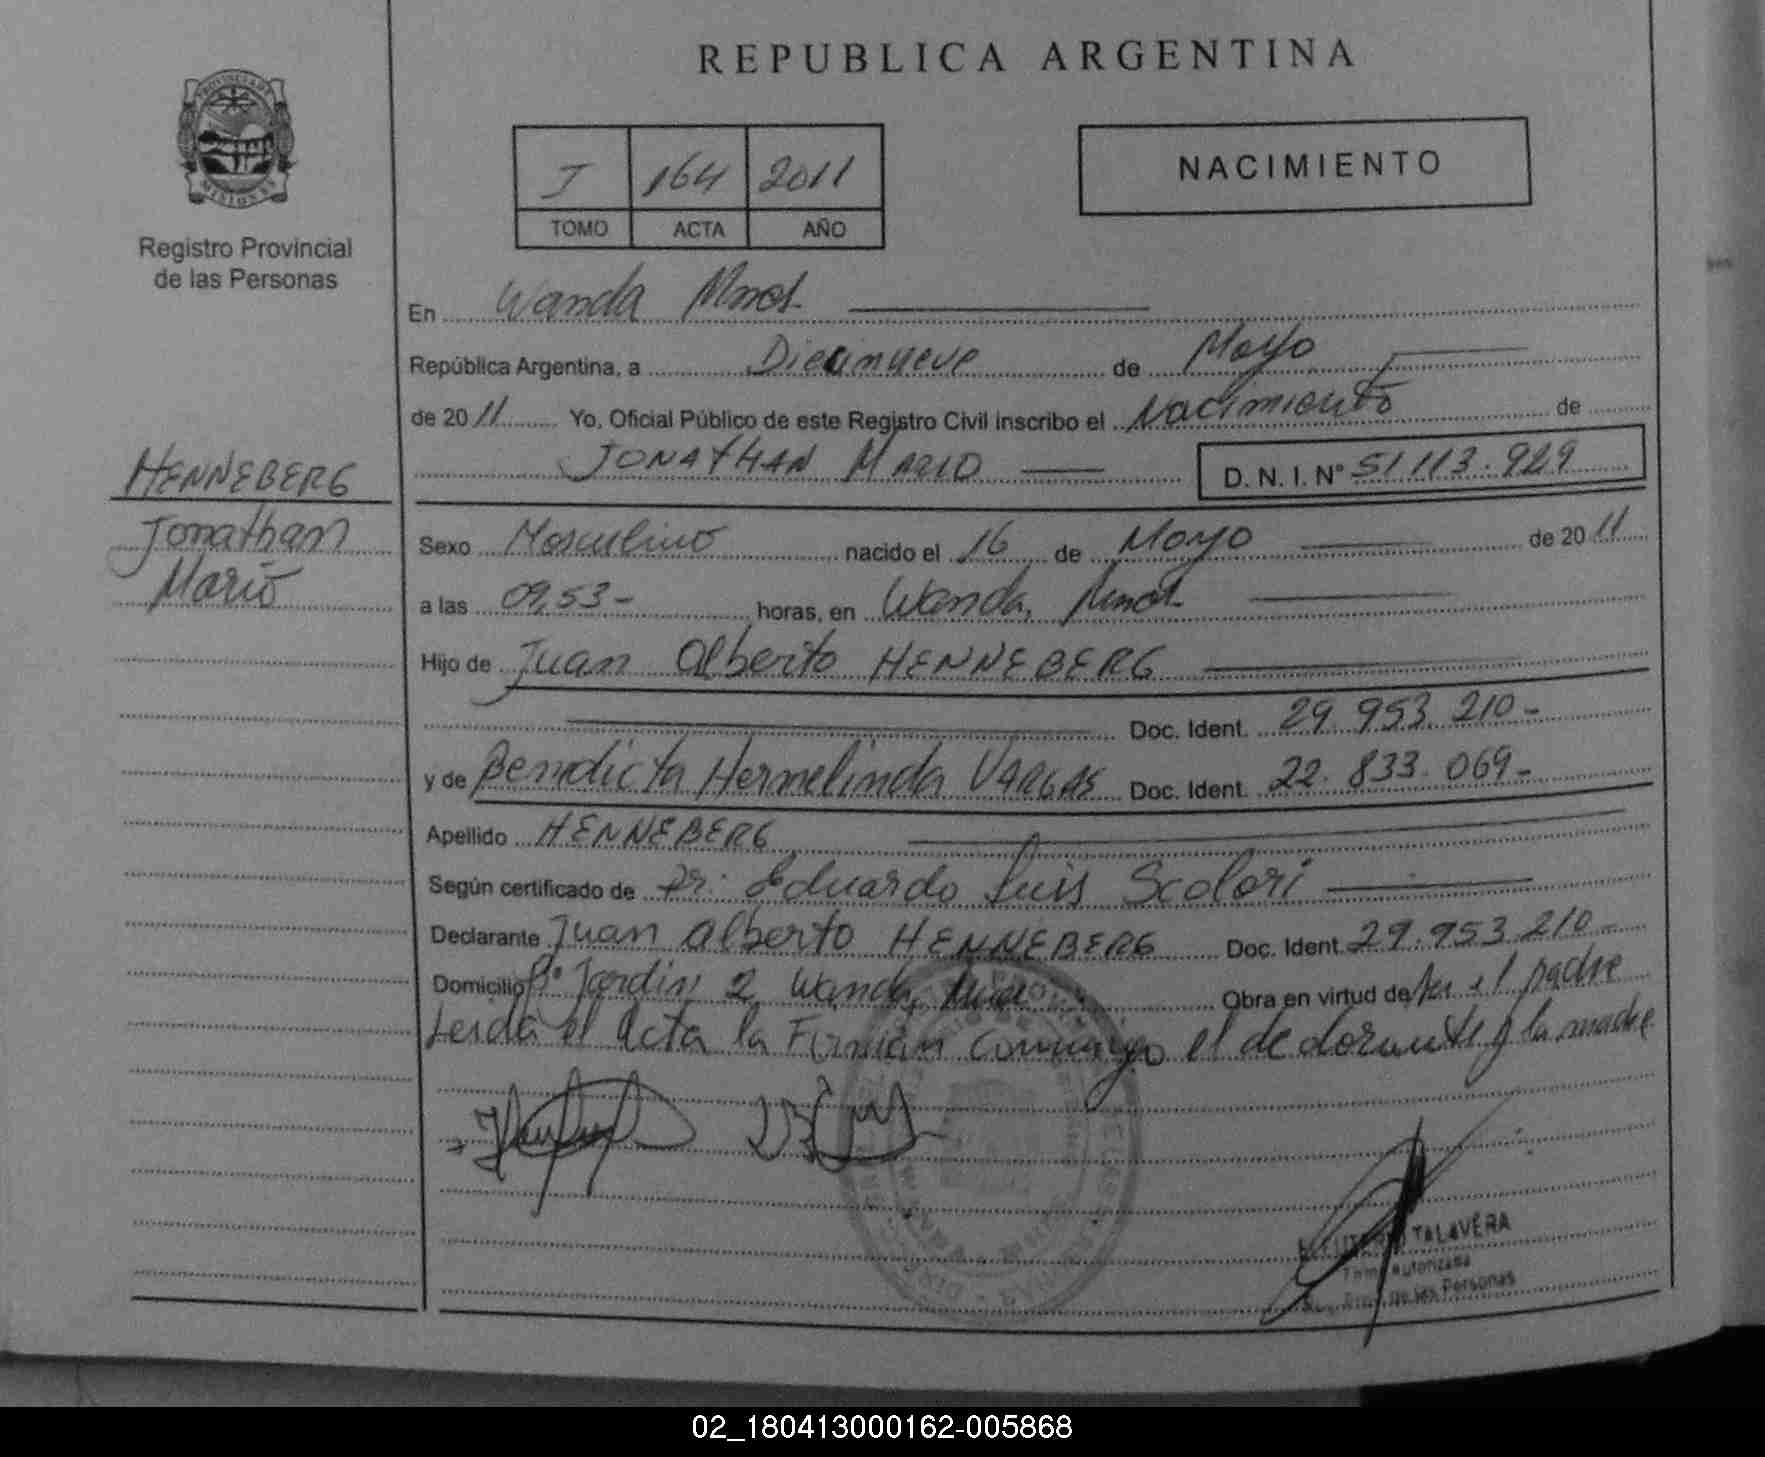 REPUBLICA ARGENTINA
PROVINCIA DE
MISIONES
Registro Provincial
de las Personas
I 164 2011
TOMO ACTA AÑO
NACIMIENTO
En Wanda Mnes.
República Argentina, a Diecinueve de Mayo
de 2011 Yo, Oficial Público de este Registro Civil inscribo el Nacimiento de
JONATHAN MARIO D. N. I. N° 51.113.929
HENNEBERG
Jonathan
Mario
Sexo Masculino nacido el 16 de Mayo de 2011
a las 09,53- horas, en Wanda, Mnes.
Hijo de Juan Alberto HENNEBERG
Doc. Ident. 29.953.210-
y de Benidicta Hermelinda VARGAS Doc. Ident. 22.833.069-
Apellido HENNEBERG
Según certificado de Dr. Eduardo Luis Scolari
Declarante Juan Alberto HENNEBERG Doc. Ident. 29.953.210-
Domicilio B° Jardin 2 Wanda, Obra en virtud de Ser el padre
Leida el Acta la Firman Conmigo el declarante y la madre
TALAVERA
Autorizada
de las Personas
02_180413000162-005868